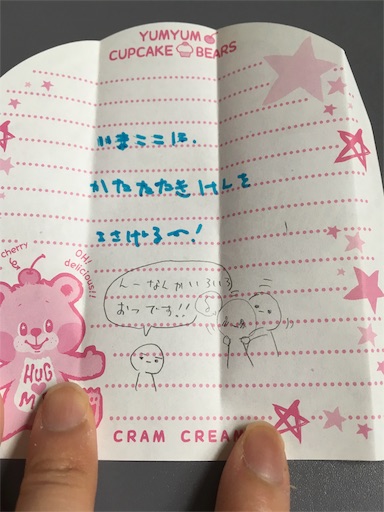 YUMYUM
CUPCAKE BEARS
いまここに、
かたたたきけんを
ささげる〜!
cherry
OH!
delicious!!
んーなんかいろいろ
おつです!!
HUG
M
CRAM CREAM